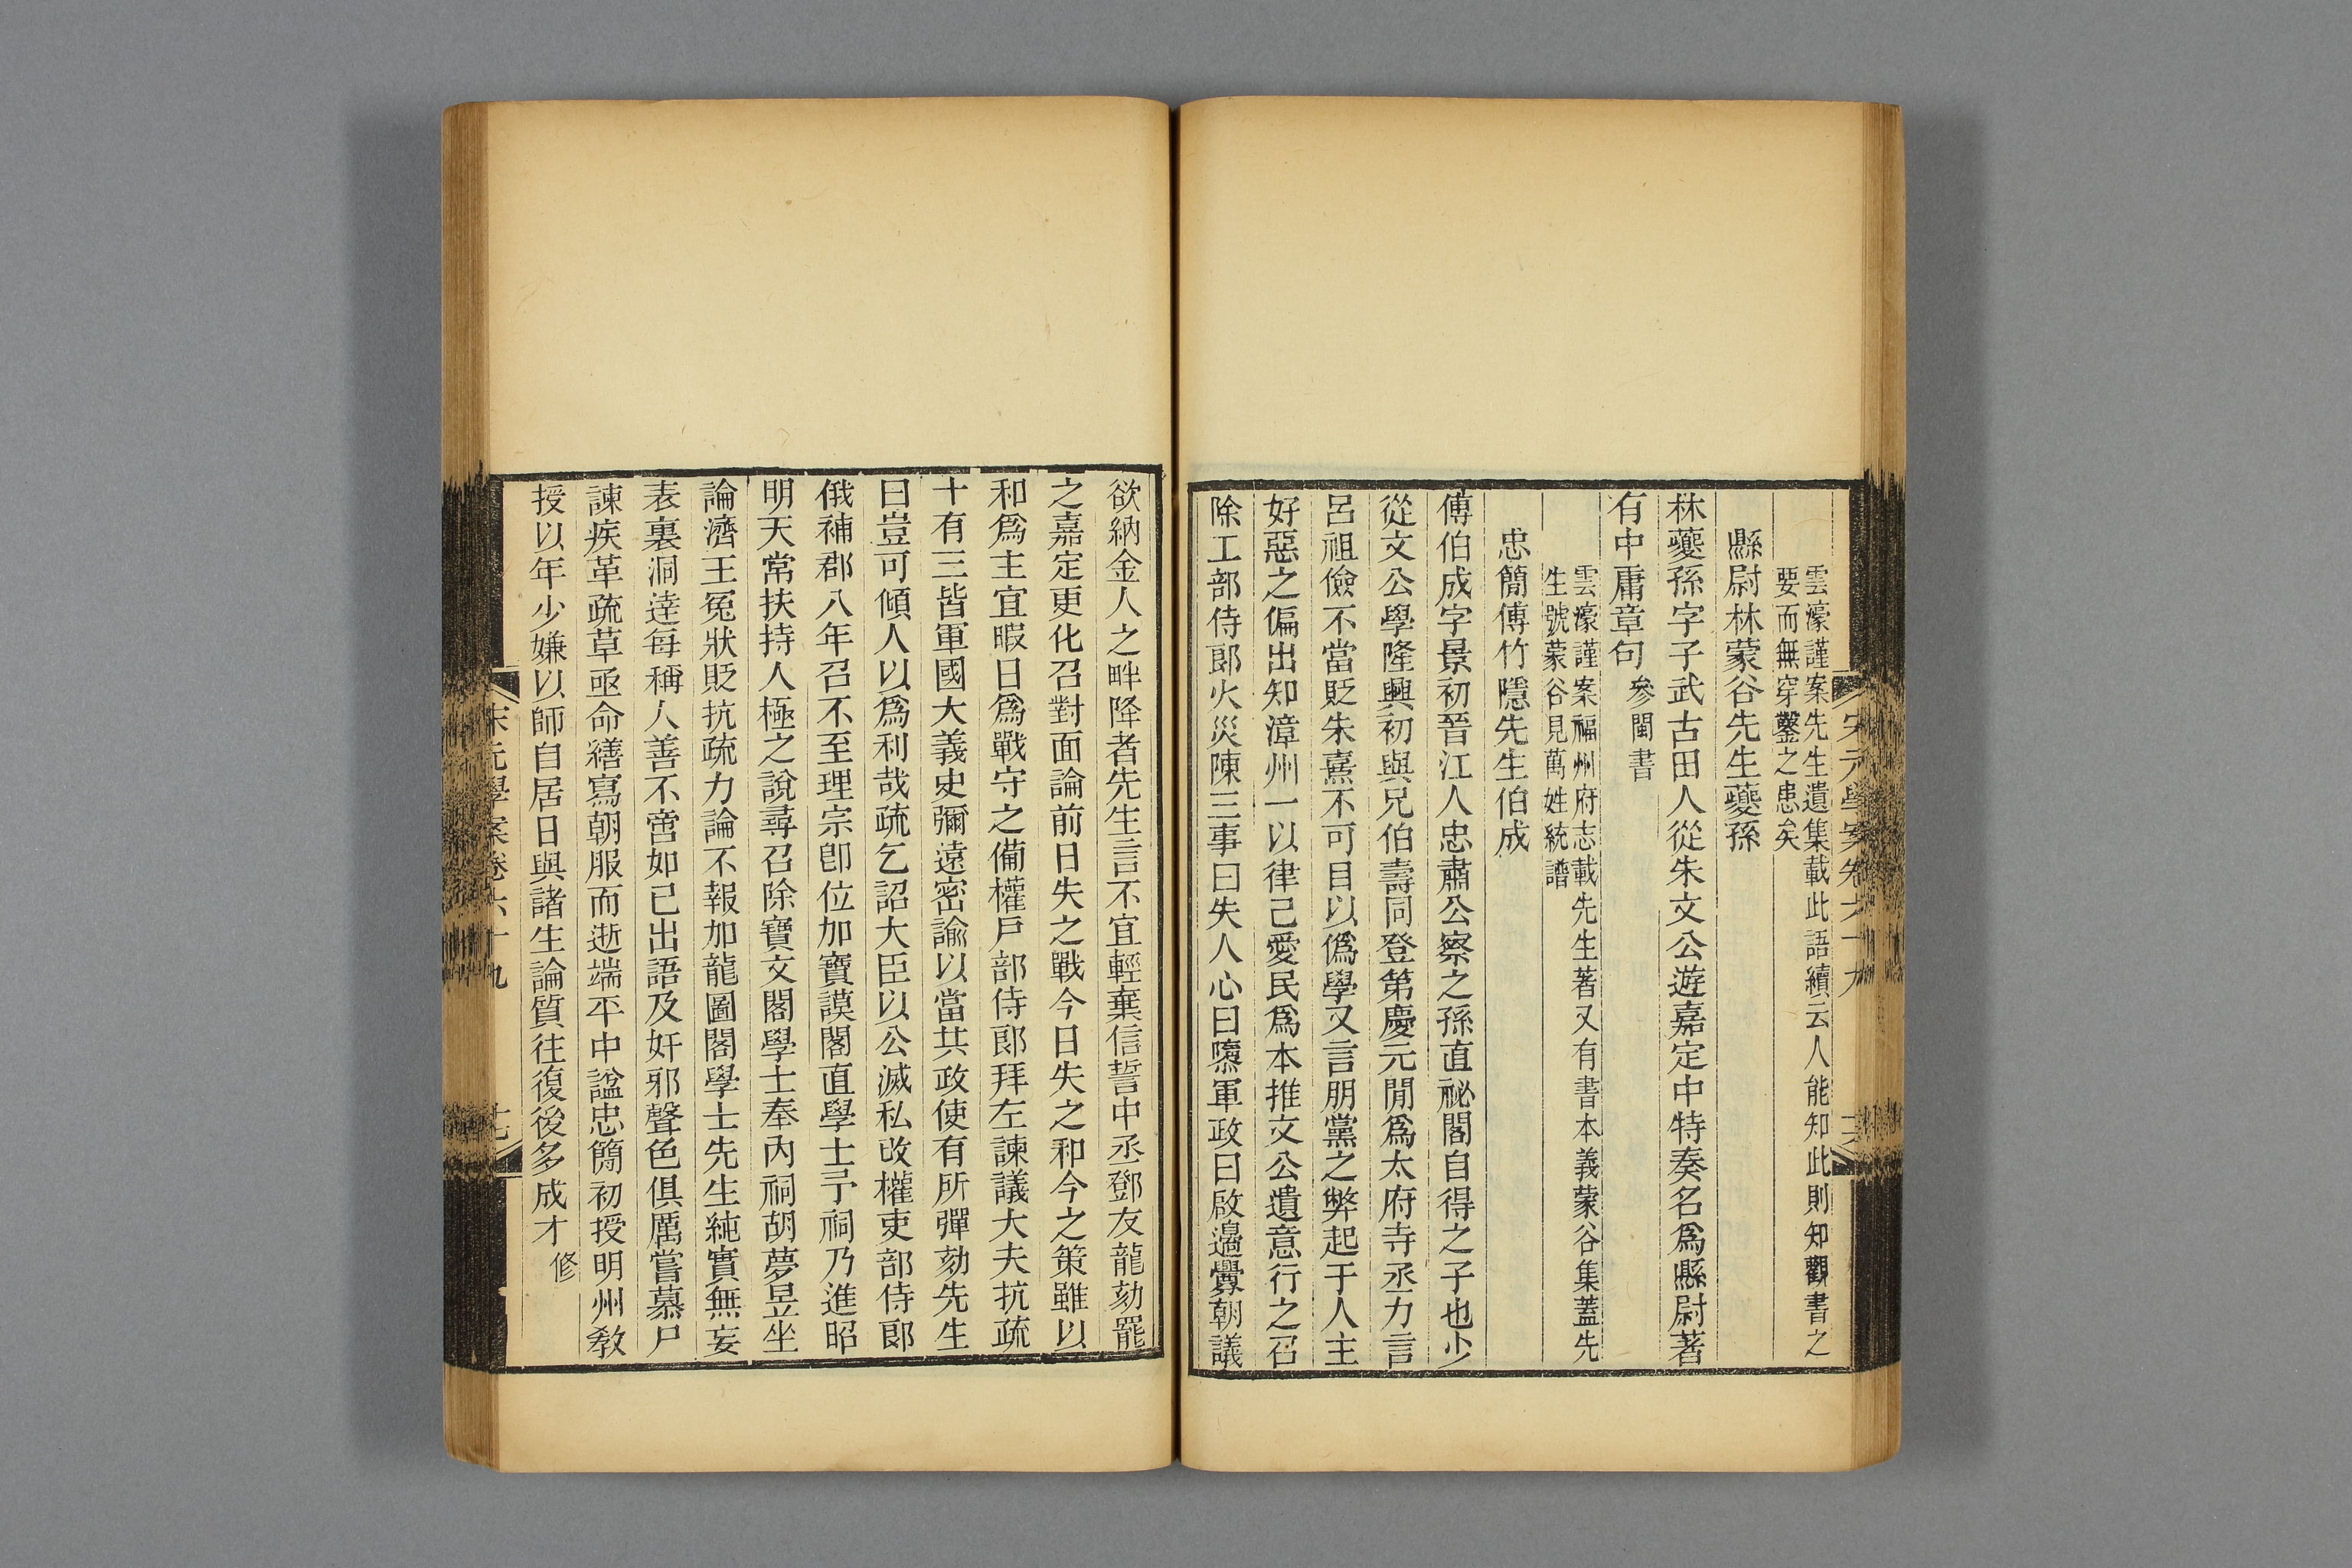 雲濠謹案先生遺集載此語續云人能知此則知觀書之
要而無穿鑿之患矣
縣尉林蒙谷先生夔孫
林夔孫字子武古田人從朱文公遊嘉定中特奏名爲縣尉著
有中庸章句參閩書
雲濠謹案福州府志載先生著又有書本義蒙谷集蓋先
生號蒙谷見萬姓統譜
忠簡傅竹隱先生伯成
傅伯成字景初晉江人忠肅公察之孫直祕閣自得之子也少
從文公學隆興初與兄伯壽同登第慶元閒爲太府寺丞力言
呂祖儉不當貶朱熹不可目以僞學又言朋黨之弊起于人主
好惡之偏出知漳州一以律己愛民爲本推文公遺意行之召
除工部侍郎火災陳三事曰失人心曰隳軍政曰啟邊釁朝議
欲納金人之畔降者先生言不宜輕棄信誓中丞鄧友龍劾罷
之嘉定更化召對面論前日失之戰今日失之和今之策雖以
和爲主宜暇日爲戰守之備權戶部侍郎拜左諫議大夫抗疏
十有三皆軍國大義史彌遠密諭以當共政使有所彈劾先生
曰豈可傾人以爲利哉疏乞詔大臣以公滅私改權吏部侍郎
俄補郡八年召不至理宗卽位加寶謨閣直學士予祠乃進昭
明天常扶持人極之說尋召除寶文閣學士奉內祠胡夢昱坐
論濟王冤狀貶抗疏力論不報加龍圖閣學士先生純實無妄
表裏洞達每稱人善不啻如已出語及奸邪聲色俱厲嘗慕尸
諫疾革疏草亟命繕寫朝服而逝端平中諡忠簡初授明州敎
授以年少嫌以師自居日與諸生論質往復後多成才修
宋元學案卷六十九
十七